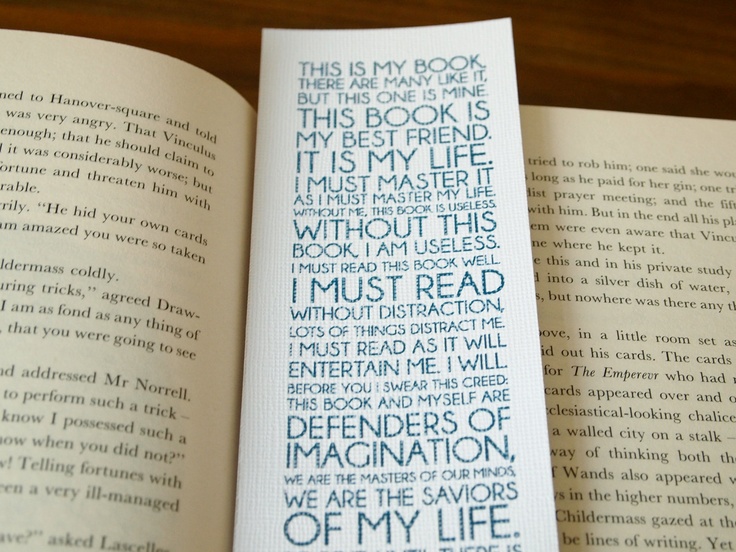 ned to Hanover-square and told
was very angry. That Vinculus
enough; that he should claim to
it was considerably worse; but
fortune and threaten him with
rable.
rily. "He hid your own cards
am amazed you were so taken
ildermass coldly.
uring tricks," agreed Draw-
I am as fond as any thing of
, that you were going to see
nd addressed Mr Norrell.
to perform such a trick –
know I possessed such a
how when you did not?"
w! Telling fortunes with
een a very ill-managed
ave?" asked Lascelles
THIS IS MY BOOK.
THERE ARE MANY LIKE IT,
BUT THIS ONE IS MINE.
THIS BOOK IS
MY BEST FRIEND.
IT IS MY LIFE.
I MUST MASTER IT
AS I MUST MASTER MY LIFE.
WITHOUT ME, THIS BOOK IS USELESS.
WITHOUT THIS
BOOK, I AM USELESS.
I MUST READ THIS BOOK WELL.
I MUST READ
WITHOUT DISTRACTION,
LOTS OF THINGS DISTRACT ME.
I MUST READ AS IT WILL
ENTERTAIN ME. I WILL.
BEFORE YOU I SWEAR THIS CREED:
THIS BOOK AND MYSELF ARE
DEFENDERS OF
IMAGINATION,
WE ARE THE MASTERS OF OUR MINDS,
WE ARE THE SAVIORS
OF MY LIFE.
UNTIL THERE IS
tried to rob him; one said she wou
s long as he paid for her gin; one tr
dist prayer meeting; and the fift
with him. But in the end all his pl
em were even aware that Vincu
ne where he kept it.
e this and in his private study
d into a silver dish of water,
, but nowhere was there any th
ove, in a little room set as
id out his cards. The cards
for The Emperevr who had n
cards appeared over and o
cclesiastical-looking chalice
a walled city on a stalk –
way of thinking both the
of Wands also appeared w
s in the higher numbers,
Childermass gazed at th
be lines of writing. Yet